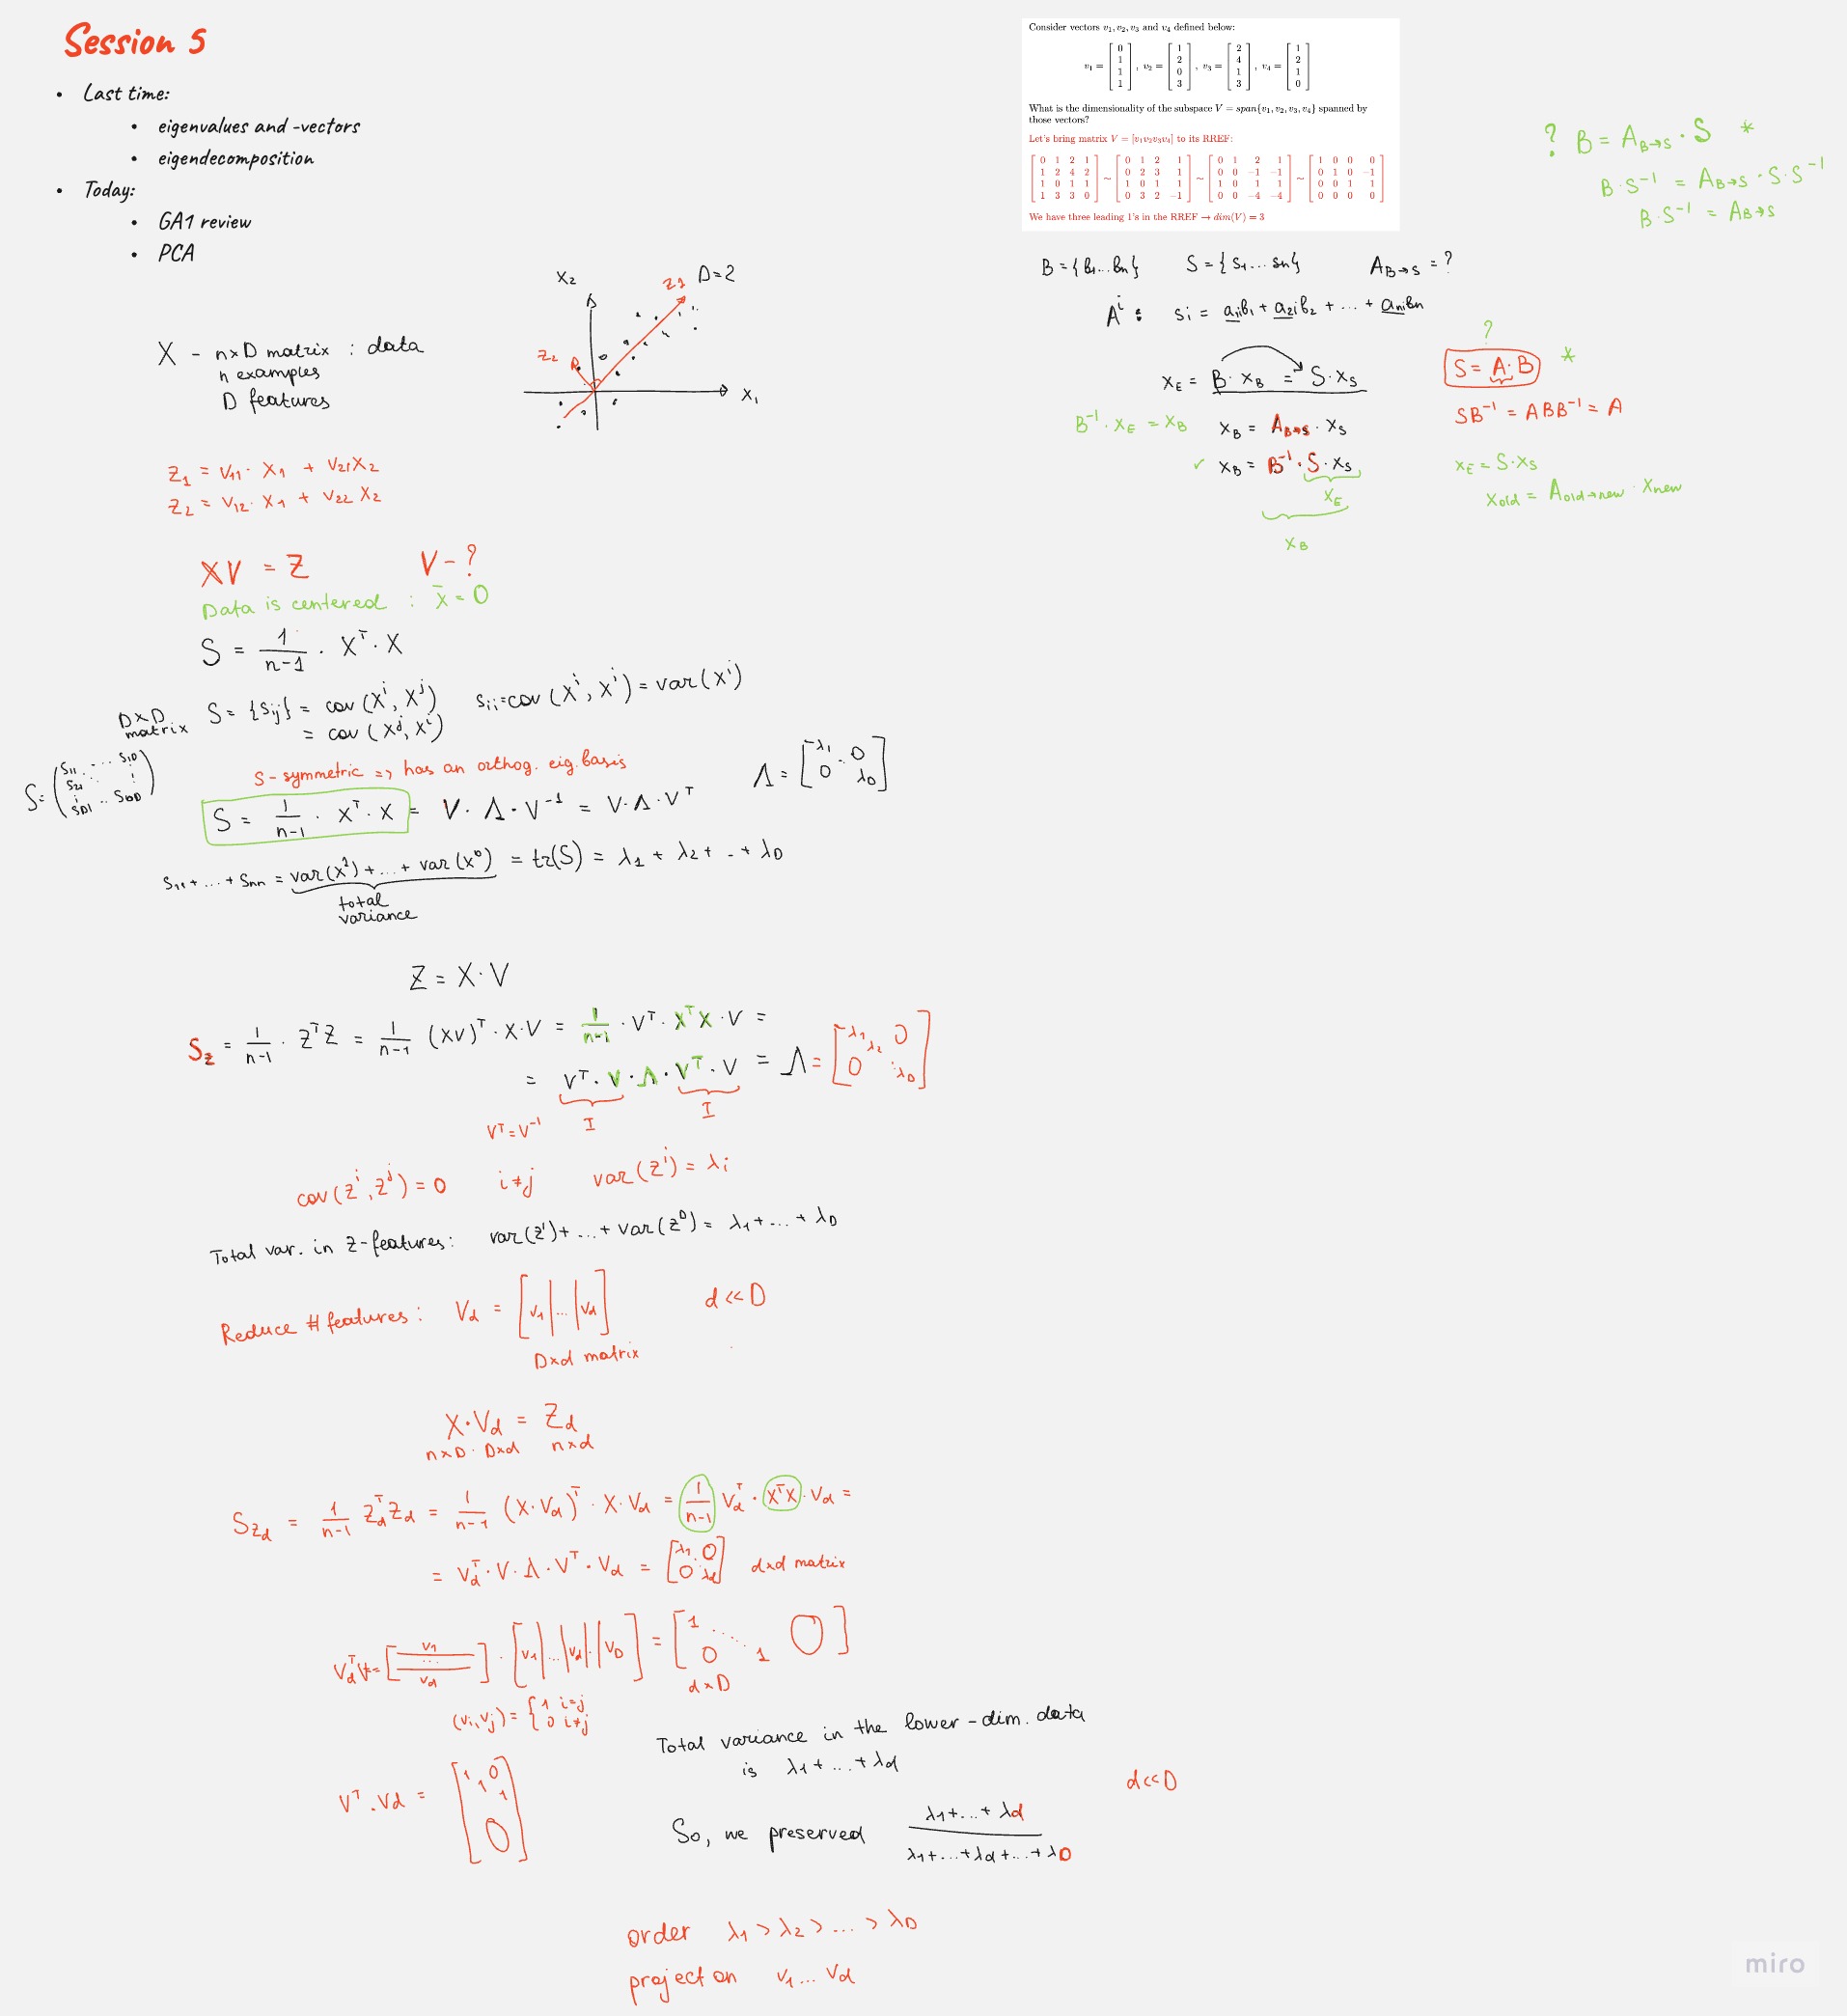 Session 5
• Last time:
• eigenvalues and -vectors
• eigendecomposition
• Today:
• GA1 review
• PCA
X - n×D matrix : data
n examples
D features
X₂
D=2
Z₁
Z₂
X₁
Z₁ = V₁₁ · X₁ + V₂₁X₂
Z₂ = V₁₂ · X₁ + V₂₂ X₂
XV = Z V - ?
Data is centered : x̄ = 0
S = 1/(n-1) · Xᵀ · X
D×D matrix S = {sij} = cov(Xⁱ, Xʲ) sii = cov(Xⁱ, Xⁱ) = var(Xⁱ)
= cov(Xʲ, Xⁱ)
S = (S₁₁ ... S₁D
S₂₁ ⋱ ⋮
⋮
SD₁ .. SDD)
S - symmetric => has an orthog. eig. basis
Λ = [λ₁ ⋱ 0
0 λD]
S = 1/(n-1) · Xᵀ · X = V · Λ · V⁻¹ = V · Λ · Vᵀ
S₁₁ + ... + Snn = var(X¹) + ... + var(Xᴰ) = tr(S) = λ₁ + λ₂ + .. + λD
total
variance
Z = X · V
Sz = 1/(n-1) · ZᵀZ = 1/(n-1) (XV)ᵀ · X · V = 1/(n-1) · Vᵀ · XᵀX · V =
= Vᵀ · V · Λ · Vᵀ · V = Λ = [λ₁ λ₂ 0
0 ⋱ λD]
Vᵀ = V⁻¹ I I
cov(Zⁱ, Zʲ) = 0 i ≠ j var(Zⁱ) = λi
Total var. in Z-features: var(Z¹) + ... + var(Zᴰ) = λ₁ + ... + λD
Reduce # features: Vd = [v₁ | ... | vd] d << D
D×d matrix
X · Vd = Zd
n×D · D×d n×d
SZd = 1/(n-1) ZdᵀZd = 1/(n-1) (X · Vd)ᵀ · X · Vd = 1/(n-1) Vdᵀ · XᵀX · Vd =
= Vdᵀ · V · Λ · Vᵀ · Vd = [λ₁ ⋱ 0
0 λd] d×d matrix
VdᵀV = [v₁
...
vd] · [v₁ | ... | vd | .. | vD] = [1 ⋱ 0
0 1 0]
d×D
(vi, vj) = {1 i=j
0 i≠j
Vᵀ · Vd = [1 0
1
1
0]
Total variance in the lower-dim. data
is λ₁ + ... + λd
d << D
So, we preserved (λ₁ + ... + λd) / (λ₁ + ... + λd + ... + λD)
order λ₁ > λ₂ > ... > λD
project on v₁ ... vd
Consider vectors v₁, v₂, v₃ and v₄ defined below:
v₁ = [0 1 1 1], v₂ = [1 2 0 3], v₃ = [2 4 1 3], v₄ = [1 2 1 0]
What is the dimensionality of the subspace V = span{v₁, v₂, v₃, v₄} spanned by
those vectors?
Let's bring matrix V = [v₁v₂v₃v₄] to its RREF:
[0 1 2 1] ~ [0 1 2 1] ~ [0 1 2 1] ~ [1 0 0 0]
[1 2 4 2] [0 2 3 1] [0 0 −1 −1] [0 1 0 −1]
[1 0 1 1] [1 0 1 1] [1 0 1 1] [0 0 1 1]
[1 3 3 0] [0 3 2 −1] [0 0 −4 −4] [0 0 0 0]
We have three leading 1's in the RREF → dim(V) = 3
? B = A B→S · S *
B · S⁻¹ = A B→S · S · S⁻¹
B · S⁻¹ = A B→S
B = {b₁...bn} S = {s₁...sn} A B→S = ?
Aⁱ : si = a₁ib₁ + a₂ib₂ + ... + anibn
?
S = A · B *
X_E = B · X_B = S · X_S
SB⁻¹ = ABB⁻¹ = A
B⁻¹ · X_E = X_B
X_B = A B→S · X_S
✓ X_B = B⁻¹ · S · X_S
X_E
X_B
X_E = S · X_S
Xold = A old→new · Xnew
miro